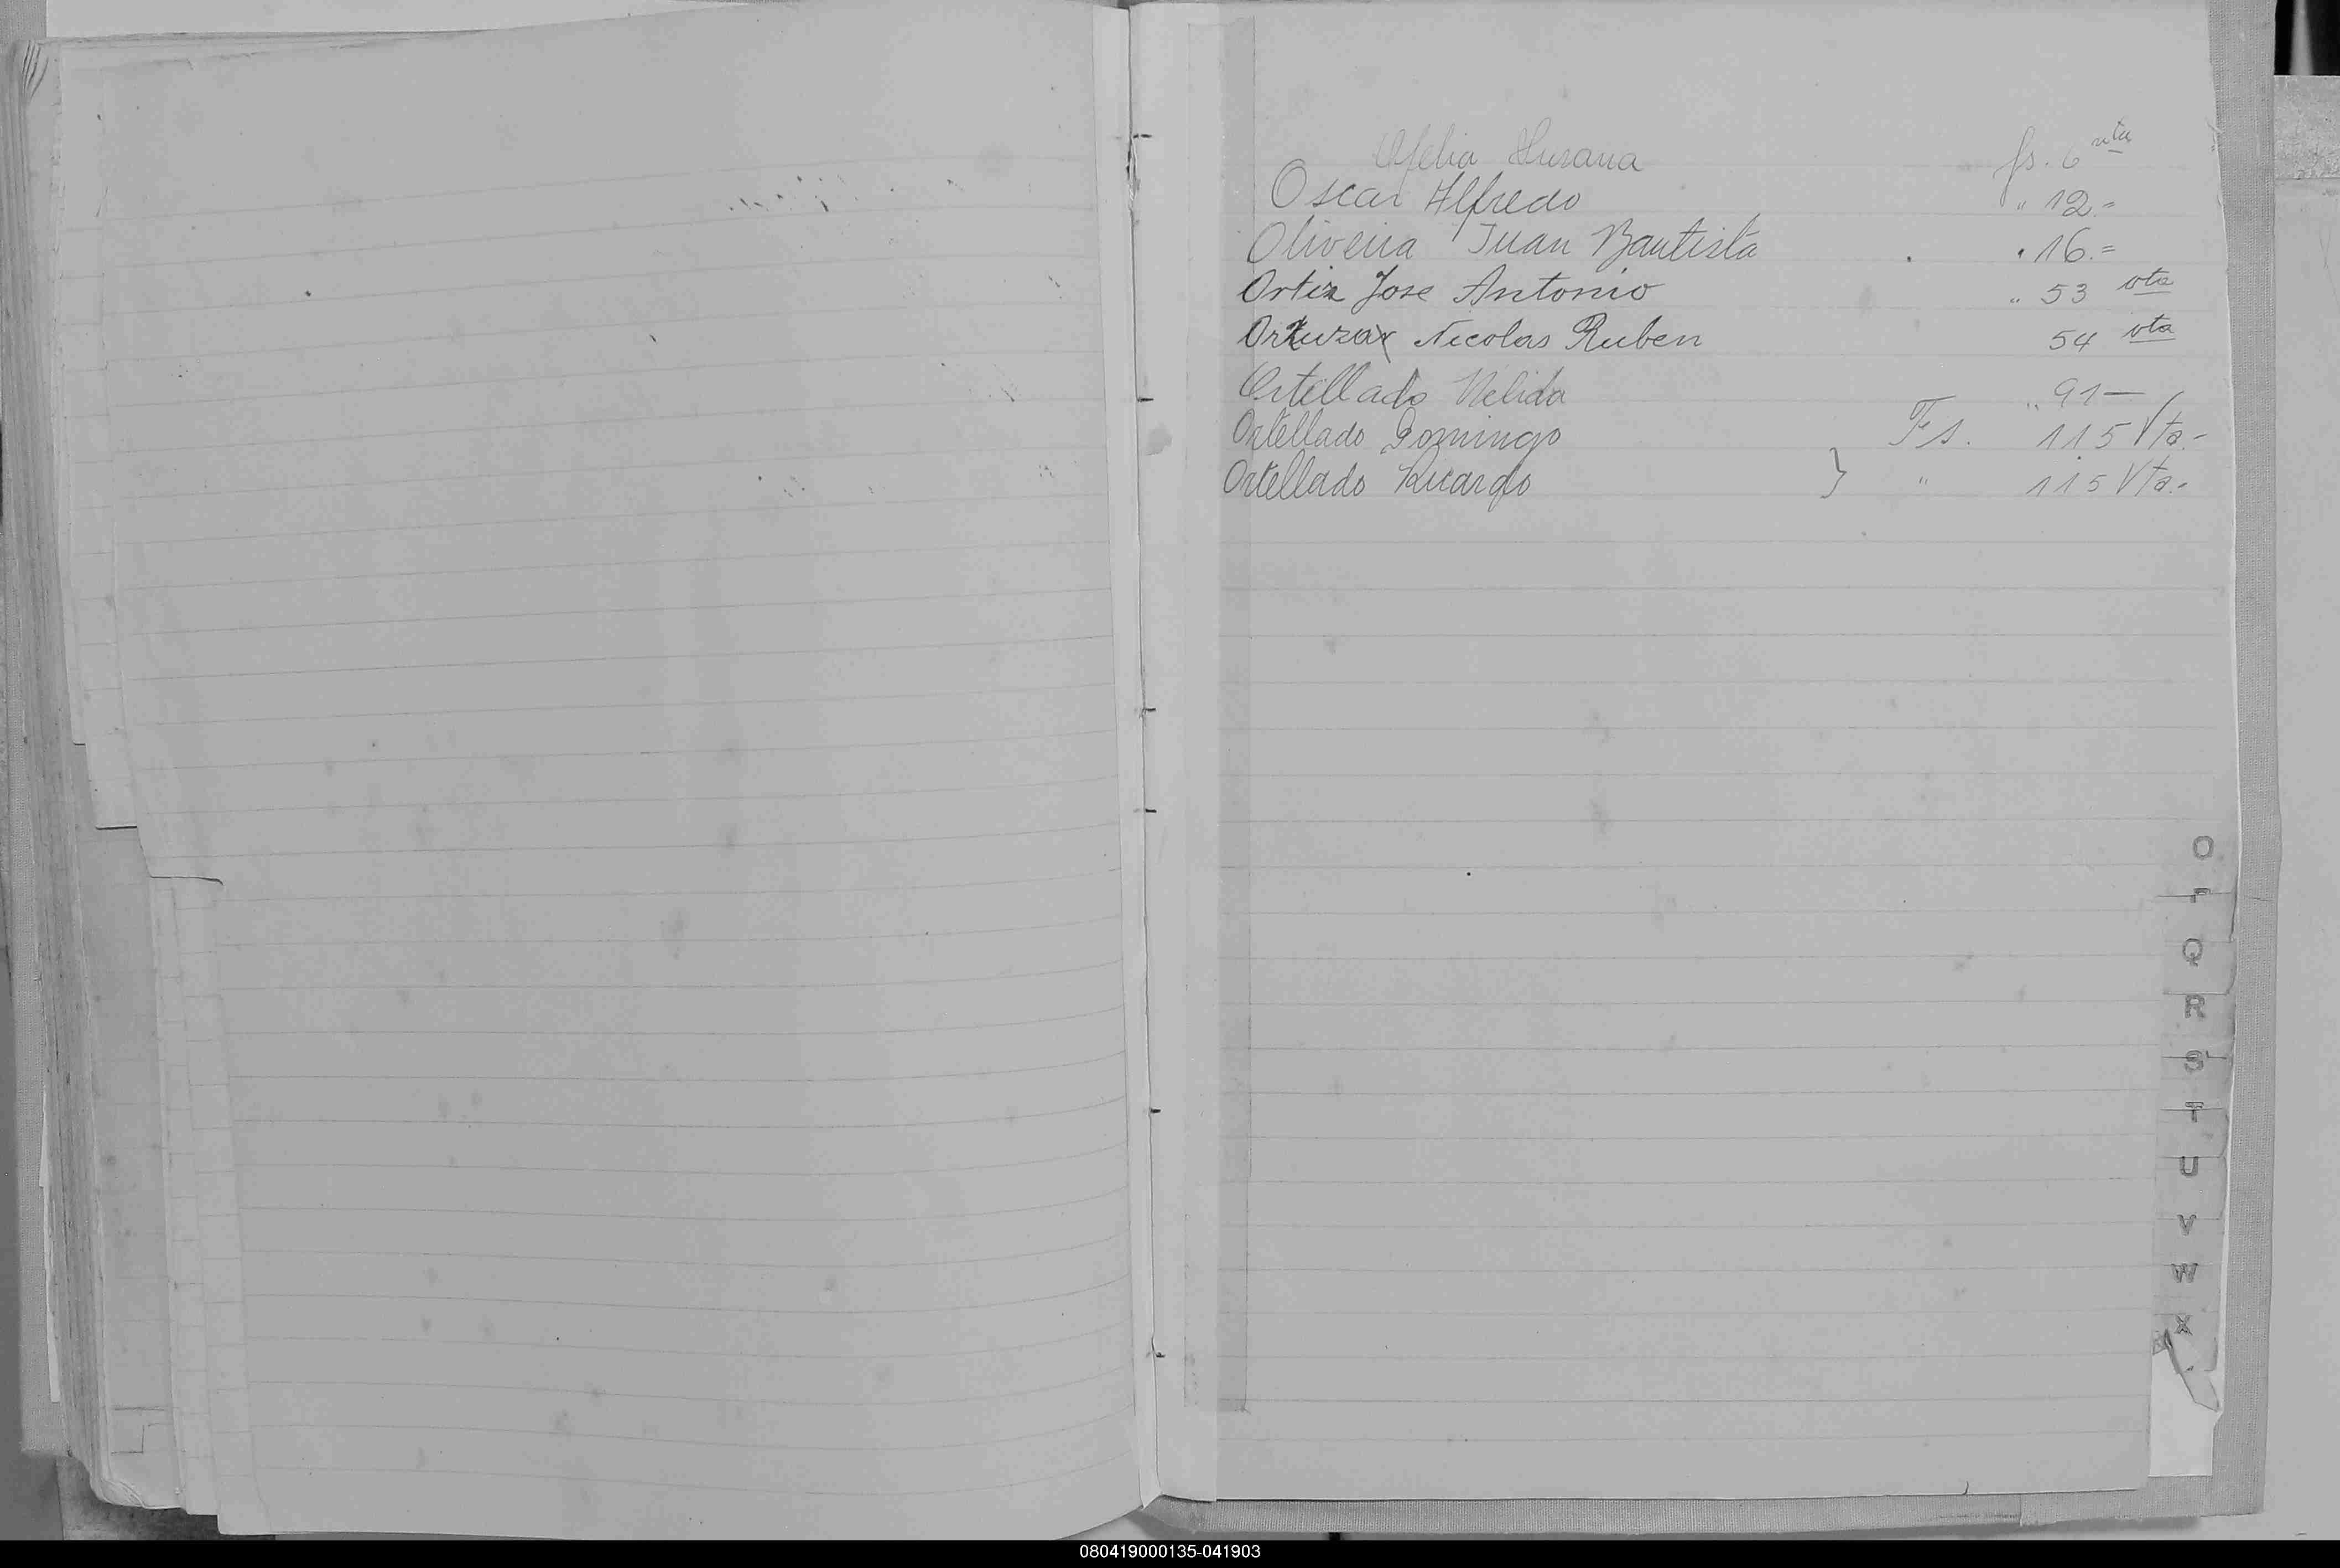 Ofelia Susana fs. 6 vta
Oscar Alfredo " 12.-
Oliveira Juan Bautista . " 16.=
Ortiz Jose Antonio " 53 vta
Ortuzar Nicolas Ruben 54 vta
Ortellado Nelida " 91 —
Ortellado Domingo Fs. 115 Vta.-
Ortellado Ricardo } " 115 Vta.-
O
P
Q
R
S
T
U
V
W
X
080419000135-041903